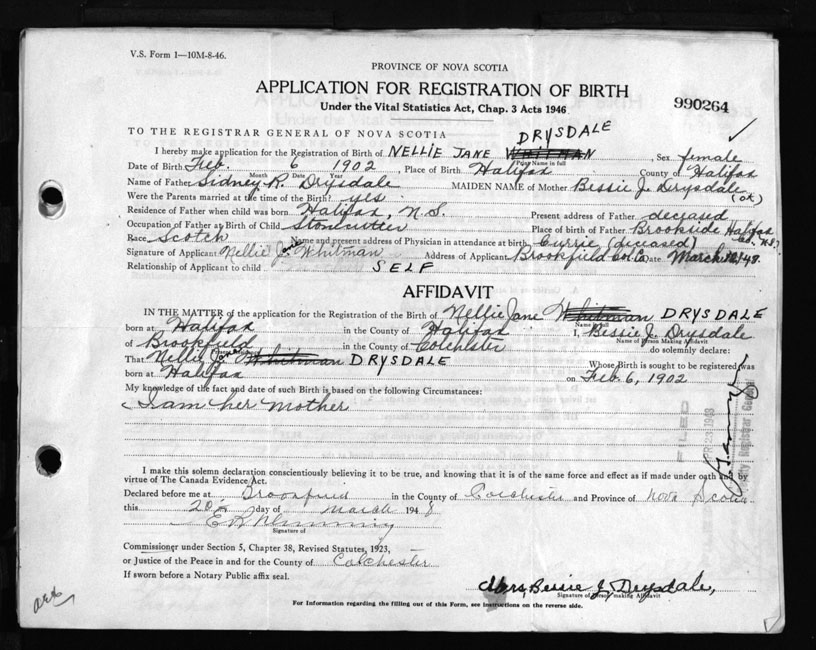 V.S. Form 1—10M-8-46.
PROVINCE OF NOVA SCOTIA
APPLICATION FOR REGISTRATION OF BIRTH
Under the Vital Statistics Act, Chap. 3 Acts 1946
990264
TO THE REGISTRAR GENERAL OF NOVA SCOTIA
DRYSDALE
I hereby make application for the Registration of Birth of NELLIE JANE WHITMAN Sex female
Print Name in full
Date of Birth Feb. 6 1902, Place of Birth Halifax County of Halifax
Month Date Year
Name of Father Sidney R. Drysdale MAIDEN NAME of Mother Bessie J. Drysdale (ok)
Were the Parents married at the time of the Birth? yes
Residence of Father when child was born Halifax, N.S. Present address of Father deceased
Occupation of Father at Birth of Child Stonecutter Place of birth of Father Brookside Halifax Co. N.S.
Race Scotch Name and present address of Physician in attendance at birth Currie (deceased)
Signature of Applicant Nellie Jane Whitman Address of Applicant Brookfield Col. Co. Date March 48.
Relationship of Applicant to child SELF
AFFIDAVIT
IN THE MATTER of the application for the Registration of the Birth of Nellie Jane Whitman DRYSDALE
Name in full
born at Halifax in the County of Halifax I, Bessie J. Drysdale
Name of Person Making Affidavit
of Brookfield in the County of Colchester do solemnly declare:
That Nellie Jane Whitman DRYSDALE Whose Birth is sought to be registered was
born at Halifax on Feb 6, 1902
My knowledge of the fact and date of such Birth is based on the following Circumstances:
I am her mother
FILED
I make this solemn declaration conscientiously believing it to be true, and knowing that it is of the same force and effect as if made under oath and by
virtue of The Canada Evidence Act.
Declared before me at Brookfield in the County of Colchester and Province of Nova Scotia
this 20 day of March 1948
Signature of
Commissioner under Section 5, Chapter 38, Revised Statutes, 1923,
or Justice of the Peace in and for the County of Colchester
If sworn before a Notary Public affix seal.
Mrs. Bessie J. Drysdale,
Signature of Person making Affidavit
For Information regarding the filling out of this Form, see Instructions on the reverse side.